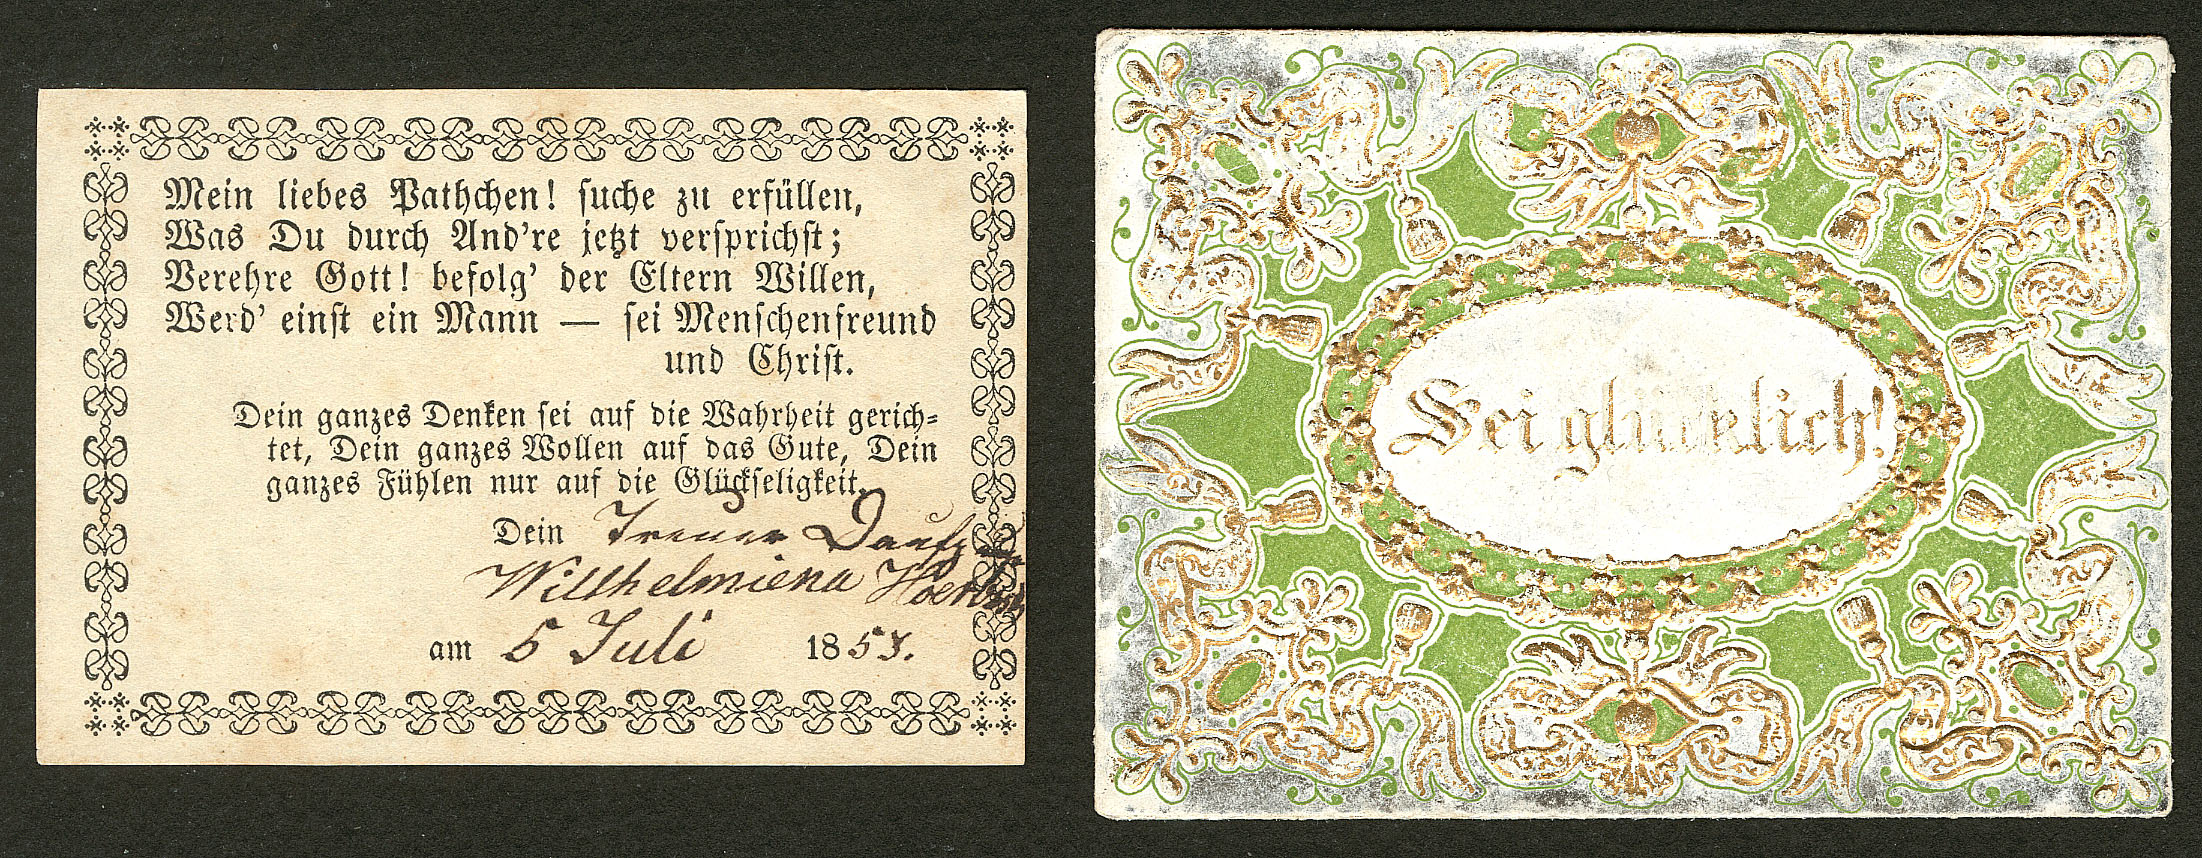 Mein liebes Pathchen! suche zu erfüllen,
Was Du durch And're jetzt versprichst;
Verehre Gott! befolg' der Eltern Willen,
Werd' einst ein Mann — sei Menschenfreund
und Christ.
Dein ganzes Denken sei auf die Wahrheit gerich-
tet, Dein ganzes Wollen auf das Gute, Dein
ganzes Fühlen nur auf die Glückseligkeit.
Dein Treuer
Willhelmiena
am 5 Juli 1853.
Sei glücklich!